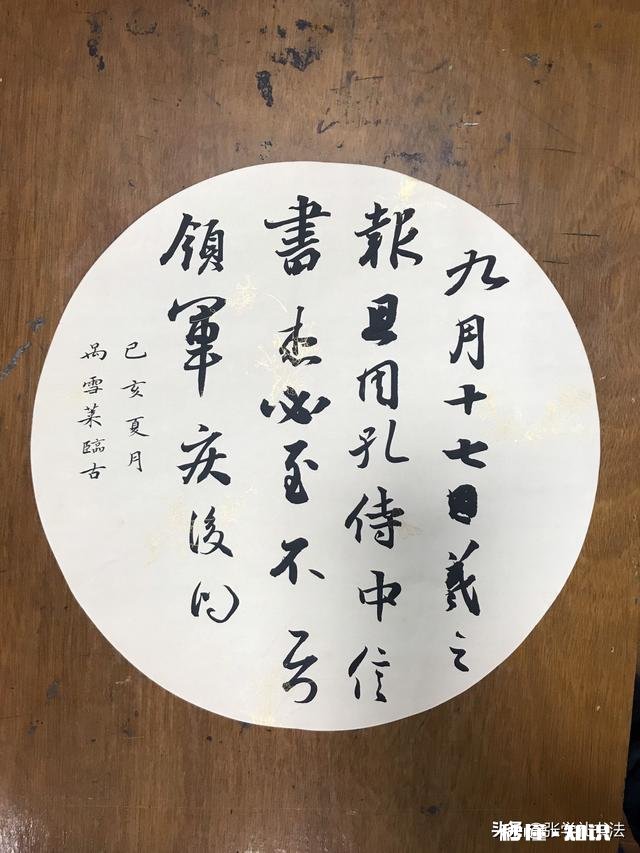 九月十七日羲之
報且因孔侍中信
書想必至不知
領軍疾後问
己亥夏月
雪莱臨古
知识
书法